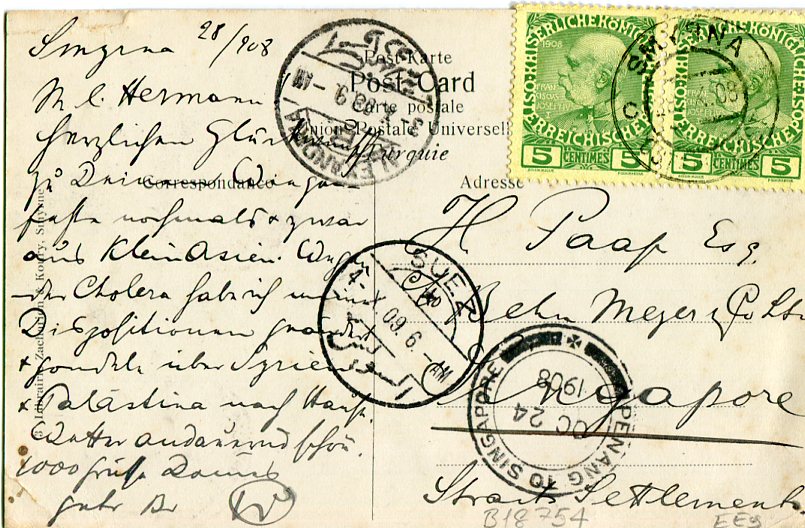 Smyrna 28/908
M l. Hermann!
herzlichen Glück
zu Deinem
nochmals & zwar
aus Kleinasien. Wegen
der Cholera habe ich meine
Dispositionen geändert
& gondele über Syrien
& Palästina nach Haus.
Wetter andauernd schön.
1000 Grüße Deines
Br
Post-Karte
Post-Card
Carte postale
Union Postale Universelle
Turquie
Correspondance
Adresse
H. Paap Esq.
C/o
Behn Meyer & Co Ltd
Singapore
Straits Settlements
B18754
SMYRNA
KAISERLICHE KÖNIGLICHE
1908
ÖSTERREICHISCHE POST
5 CENTIMES 5
5 CENTIMES 5
SUEZ
4-X 09. 6. -AM
السويس
PENANG TO SINGAPORE
OC 24
1908